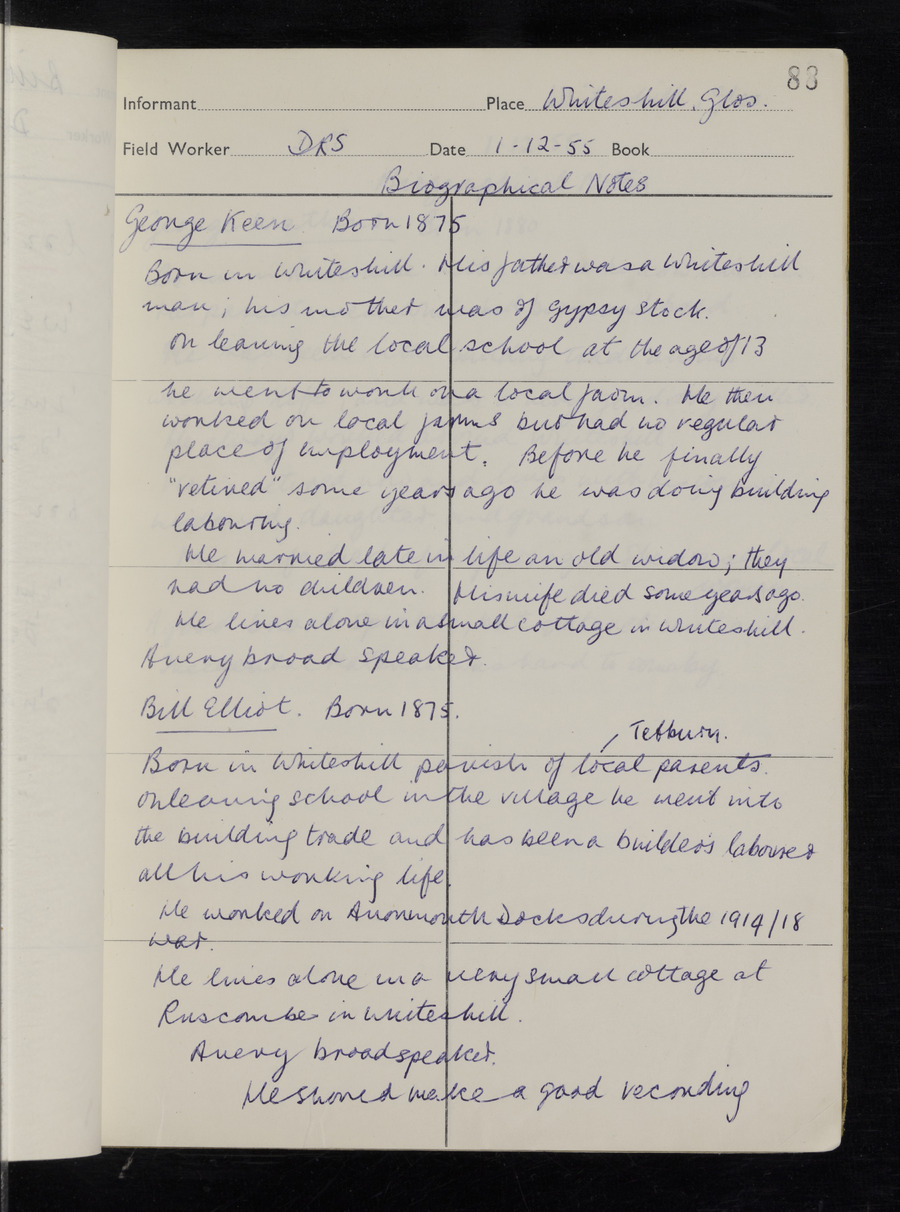 83
Informant Place Whiteshill, Glos.
Field Worker DRS Date 1-12-55 Book
Biographical Notes
George Keen Born 1875
Born in Whiteshill. His father was a Whiteshill
man; his mother was of gypsy stock.
On leaving the local school at the age of 13
he went to work on a local farm. He then
worked on local farms but had no regular
place of employment. Before he finally
"retired" some years ago he was doing building
labouring.
He married late in life an old widow; they
had no children. His wife died some years ago.
He lives alone in a small cottage in Whiteshill.
A very broad speaker.
Bill Elliot. Born 1875.
, Tetbury.
Born in Whiteshill parish of local parents.
On leaving school in the village he went into
the building trade and has been a builder's labourer
all his working life.
He worked on Avonmouth Docks during the 1914/18
war.
He lives alone in a very small cottage at
Ruscombe in Whiteshill.
A very broad speaker.
He should make a good recording